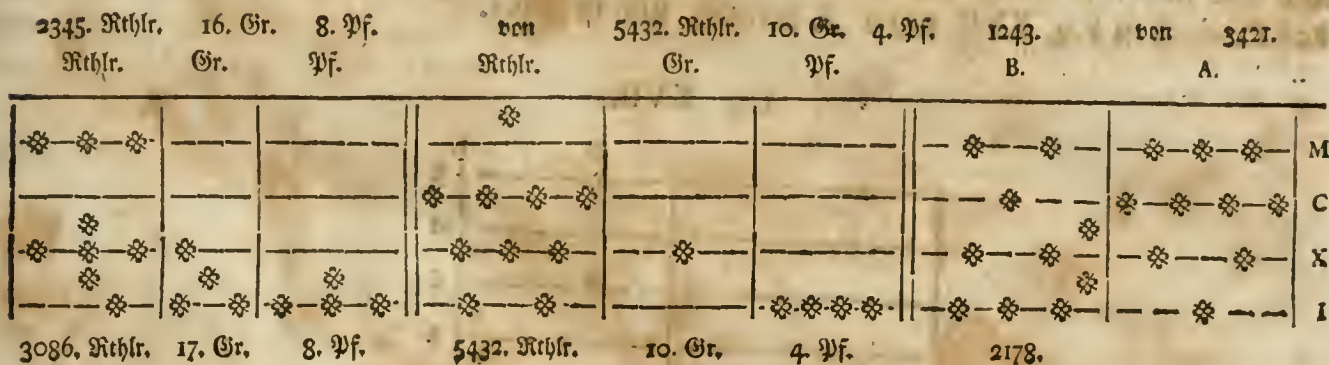 2345. Rthlr. 16. Gr. 8. Pf. von 5432. Rthlr. 10. Gr. 4. Pf. 1243. von 3421.
Rthlr. Gr. Pf. Rthlr. Gr. Pf. B. A.
M
C
X
I
3086. Rthlr. 17. Gr. 8. Pf. 5432. Rthlr. 10. Gr. 4. Pf. 2178.